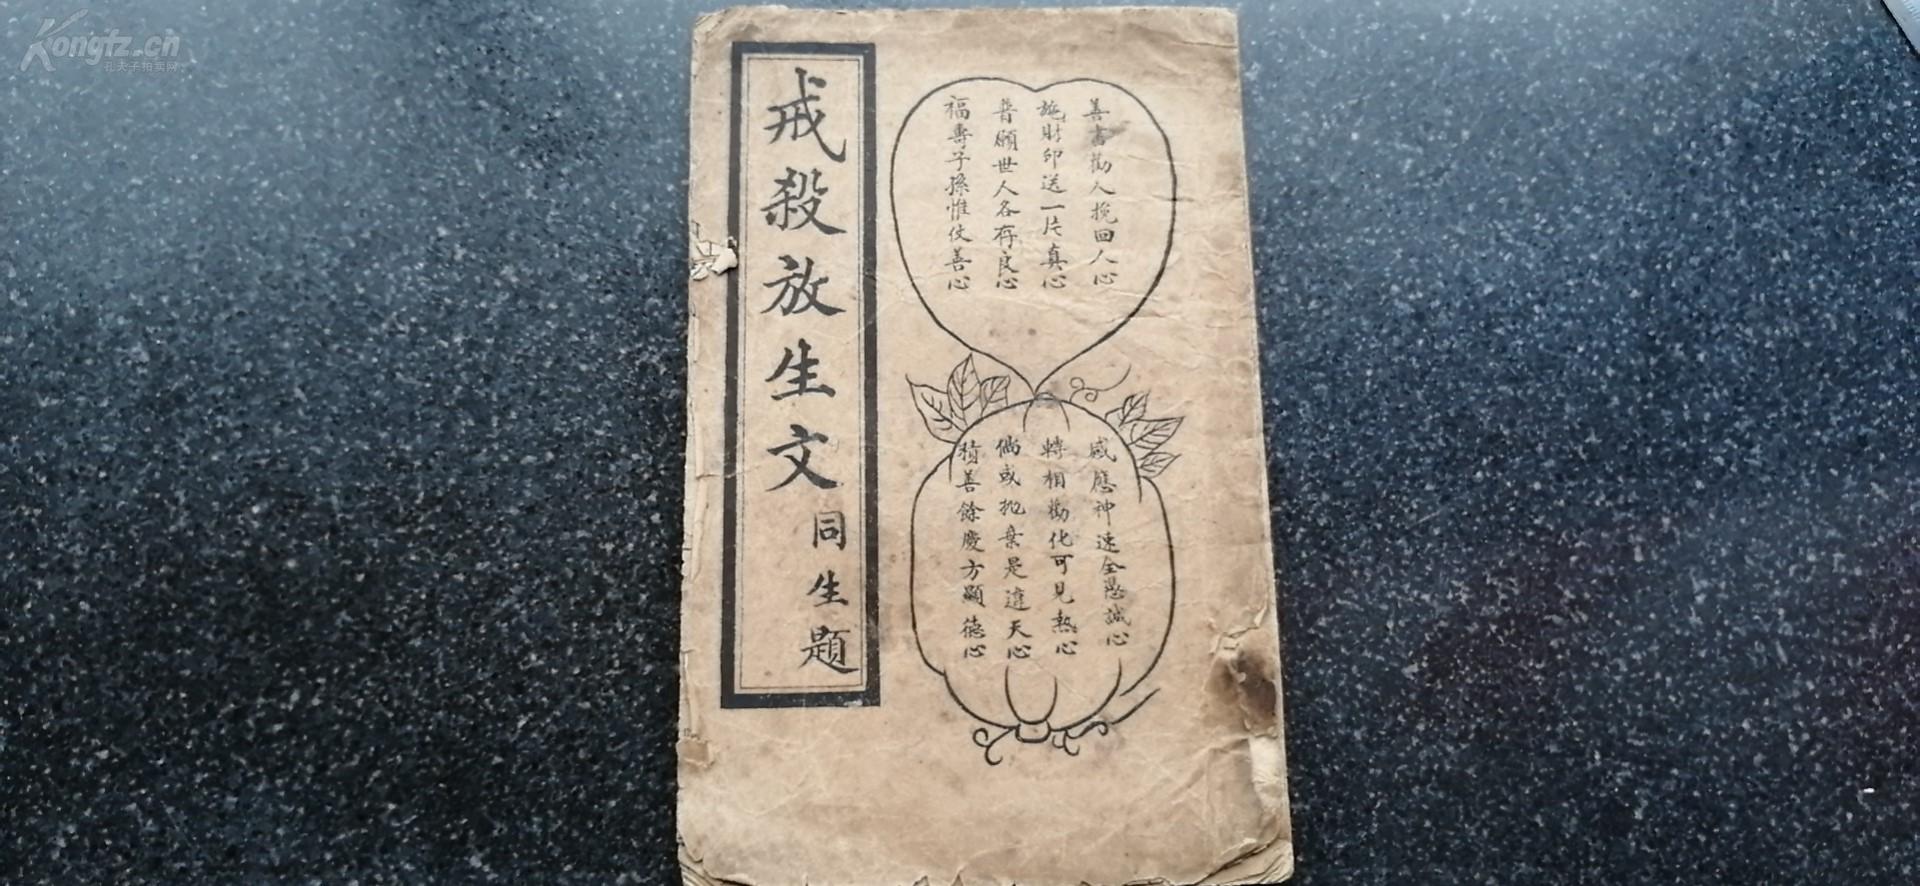 Kongfz.cn
孔夫子拍卖网
戒殺放生文
同生題
善書勸人挽回人心
施財印送一片真心
普願世人各存良心
福壽子孫惟仗善心
感應神速全憑誠心
轉相勸化可見熱心
倘或抛棄是違天心
積善餘慶方顯德心